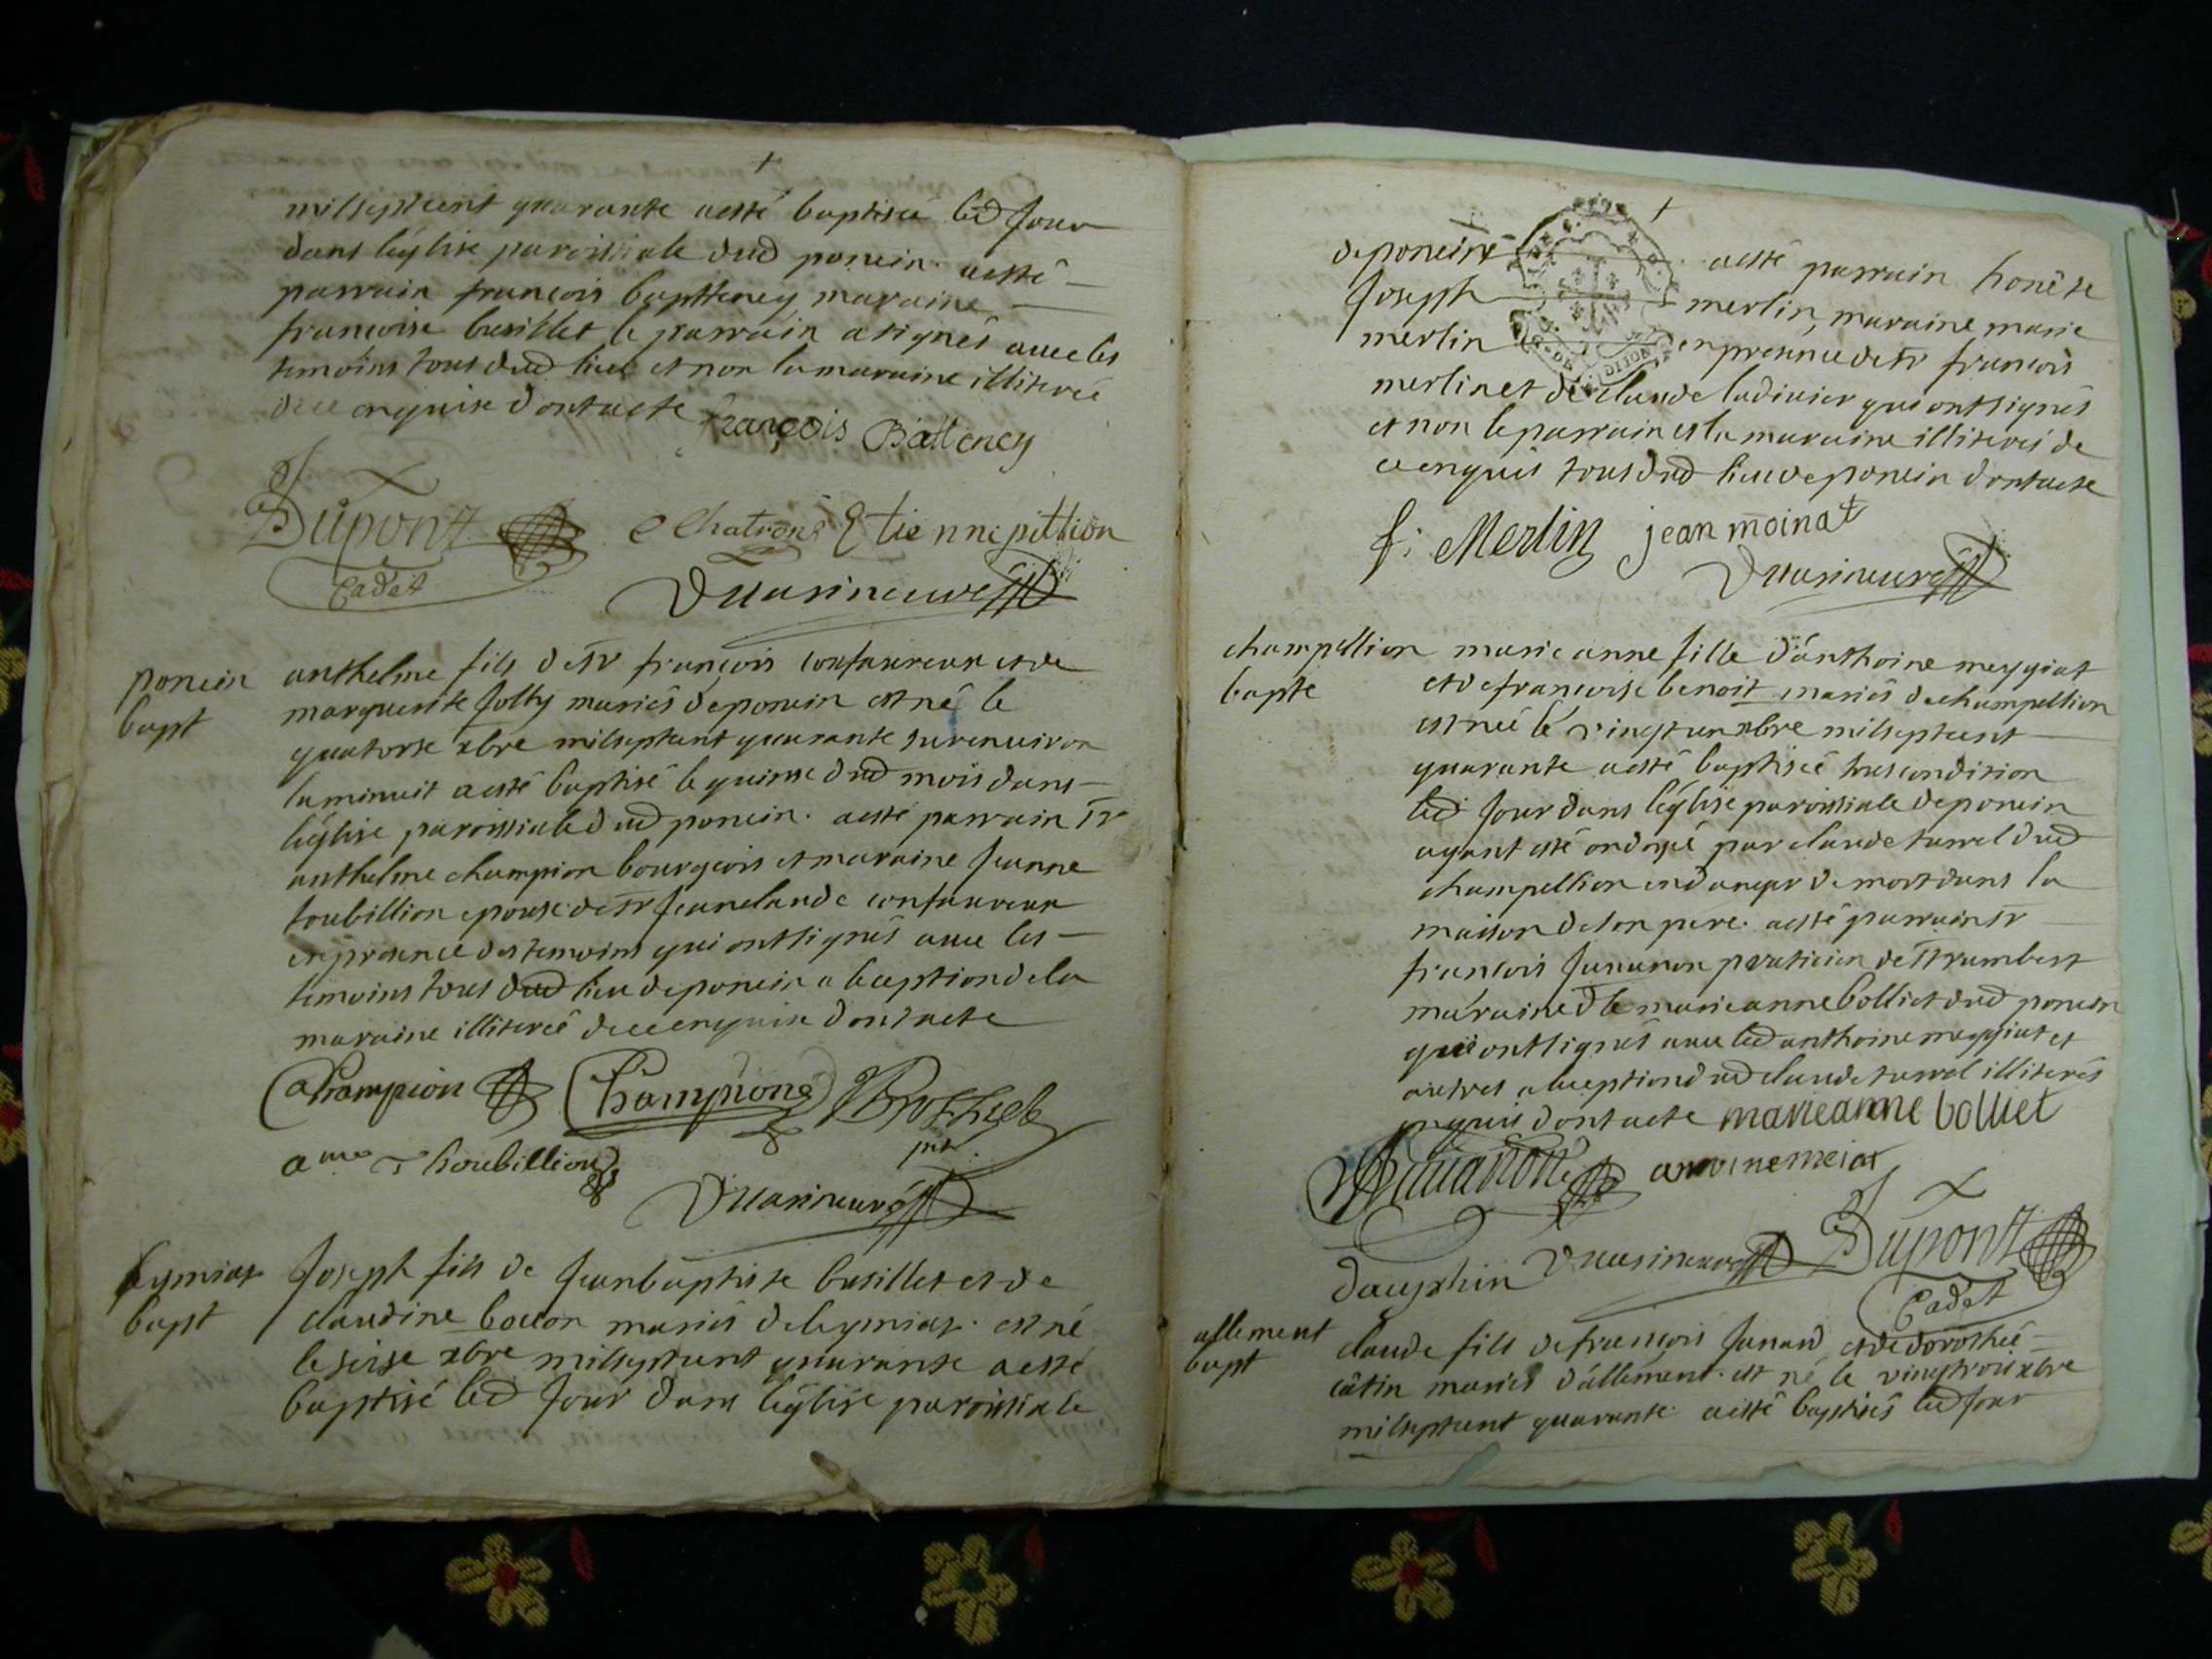 milseptcent quarante aesté baptisée led jour
dans l'église paroissiale dud poncin. aesté
parrain francois baptteney maraine
francoise busillet le parrain a signés avec les
temoins tous dud lieu et non la maraine illiterée
de ce enquise dont acte françois Battency
Dupont C Chatron Etienne pittion
Cadet
Duasineuve
poncin anthelme fils de sr françois confavreux et de
bapt marguerite Jolly mariés de poncin est né le
quatorse xbre milseptcent quarante sur environ
la minuit aesté baptisé le quinse dud mois dans
l'église paroissiale dud poncin. aesté parrain sr
anthelme champion bourgeois et maraine jeanne
toubillion epouse de sr jeanclaude confavreux
en presence des temoins qui ont signés avec les
temoins tous dud lieu de poncin a lexeption de la
maraine illiterée de ce enquise dont acte
Champion Champion
Thoubillion
Duasineuve
leymiat Joseph fils de jeanbaptiste busillet et de
bapt claudine bocon mariés de leymiat. est né
le seise xbre milseptcent quarante aesté
baptisé led jour dans l'église paroissiale
de poncin aesté parrain honête
Joseph merlin, maraine marie
merlin en presence de sr francois
merlin et de claude ladivier qui ont signés
et non le parrain et la maraine illiterés de
ce enquis tous dud lieu de poncin dont acte
f: Merlin jean moinat
Duasineuve
champellion marie anne fille d'anthoine meygiat
bapte et de francoise benoit mariés de champellion
est née le vingt un xbre milseptcent
quarante aesté baptisée sous condition
led jour dans l'église paroissiale de poncin
ayant esté ondoyé par claude tarrel dud
champellion en danger de mort dans la
maison de son pere. aesté parrain sr
francois Juvanon praticien de st rambert
maraine dlle marieanne bolliet dud poncin
qui ont signés avec led anthoine meygiat et
autres a lexeption dud claude tarrel illiterés
enquis dont acte marieanne bolliet
Juvanon antoine meiat
dauphin Duasineuve Dupont
Cadet
allement claude fils de francois Junand et de dorothée
bapt catin mariés d'allement. est né le vingtrois xbre
milseptcent quarante aesté baptisés led jour